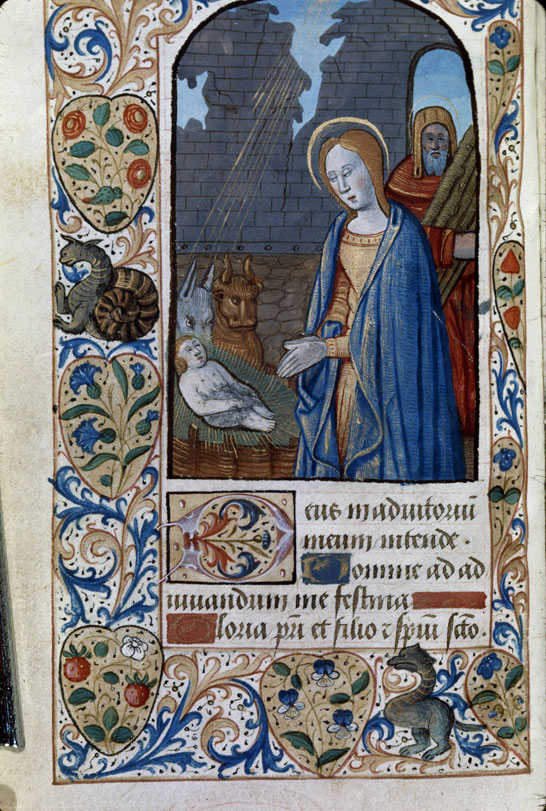 Deus in adiutoriū
meum intende.
Domine ad ad
iuuandum me festina
Gloria pr̄i et filio ⁊ spūi scō.